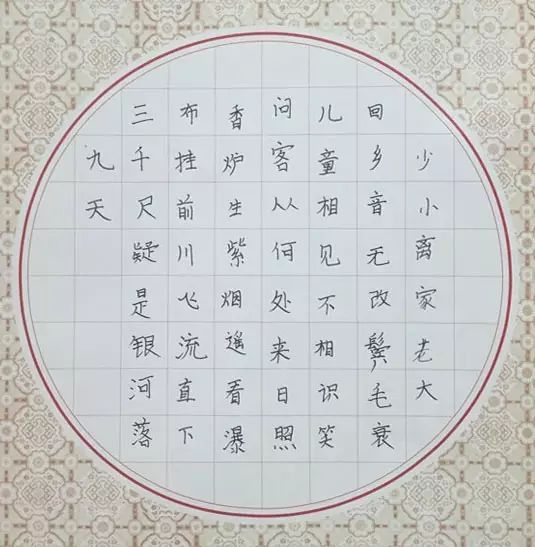 少小离家老大
回乡音无改鬓毛衰
儿童相见不相识笑
问客从何处来日照
香炉生紫烟遥看瀑
布挂前川飞流直下
三千尺疑是银河落
九天